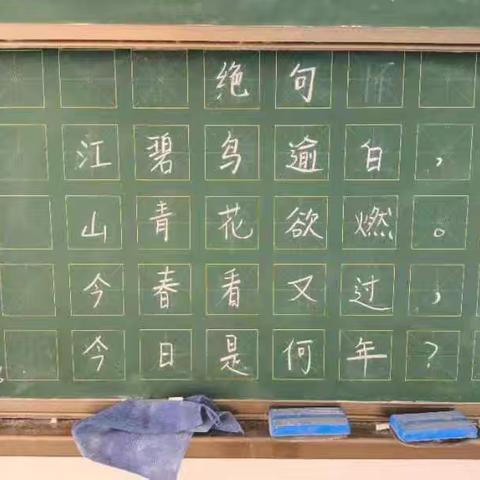 绝句
江碧鸟逾白，
山青花欲燃。
今春看又过，
今日是何年？